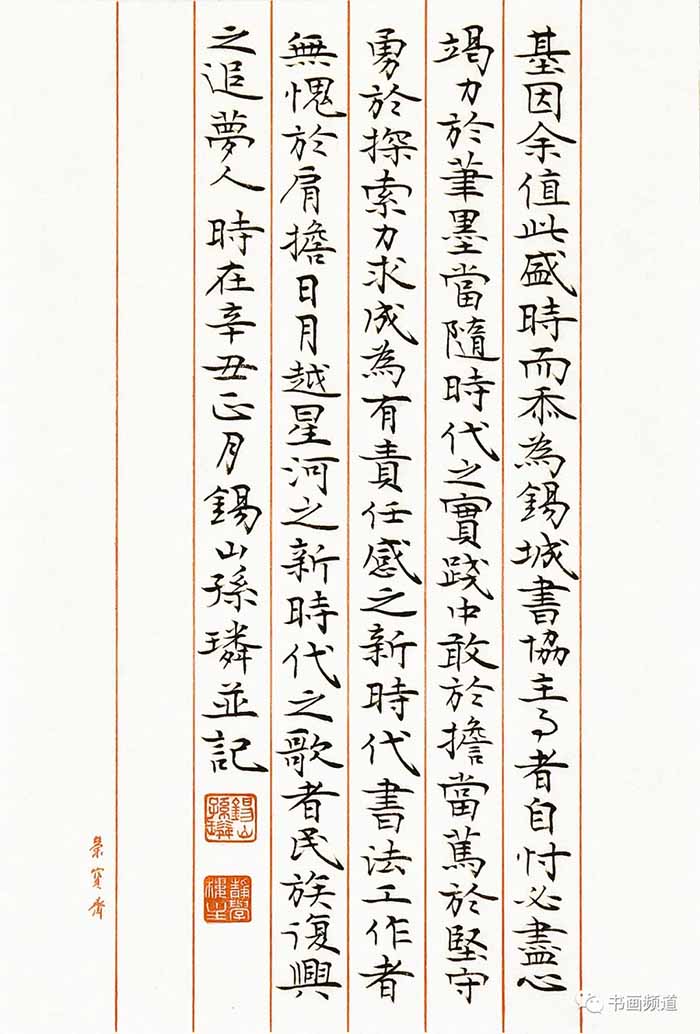 基因余值此盛時而忝為錫城書協主事者自忖必盡心
竭力於筆墨當隨時代之實踐中敢於擔當篤於堅守
勇於探索力求成為有責任感之新時代書法工作者
無愧於肩擔日月越星河之新時代之歌者民族復興
之追夢人 時在辛丑正月錫山孫璘並記
錫山孫璘
靜學樓主
榮寶齋
书画频道